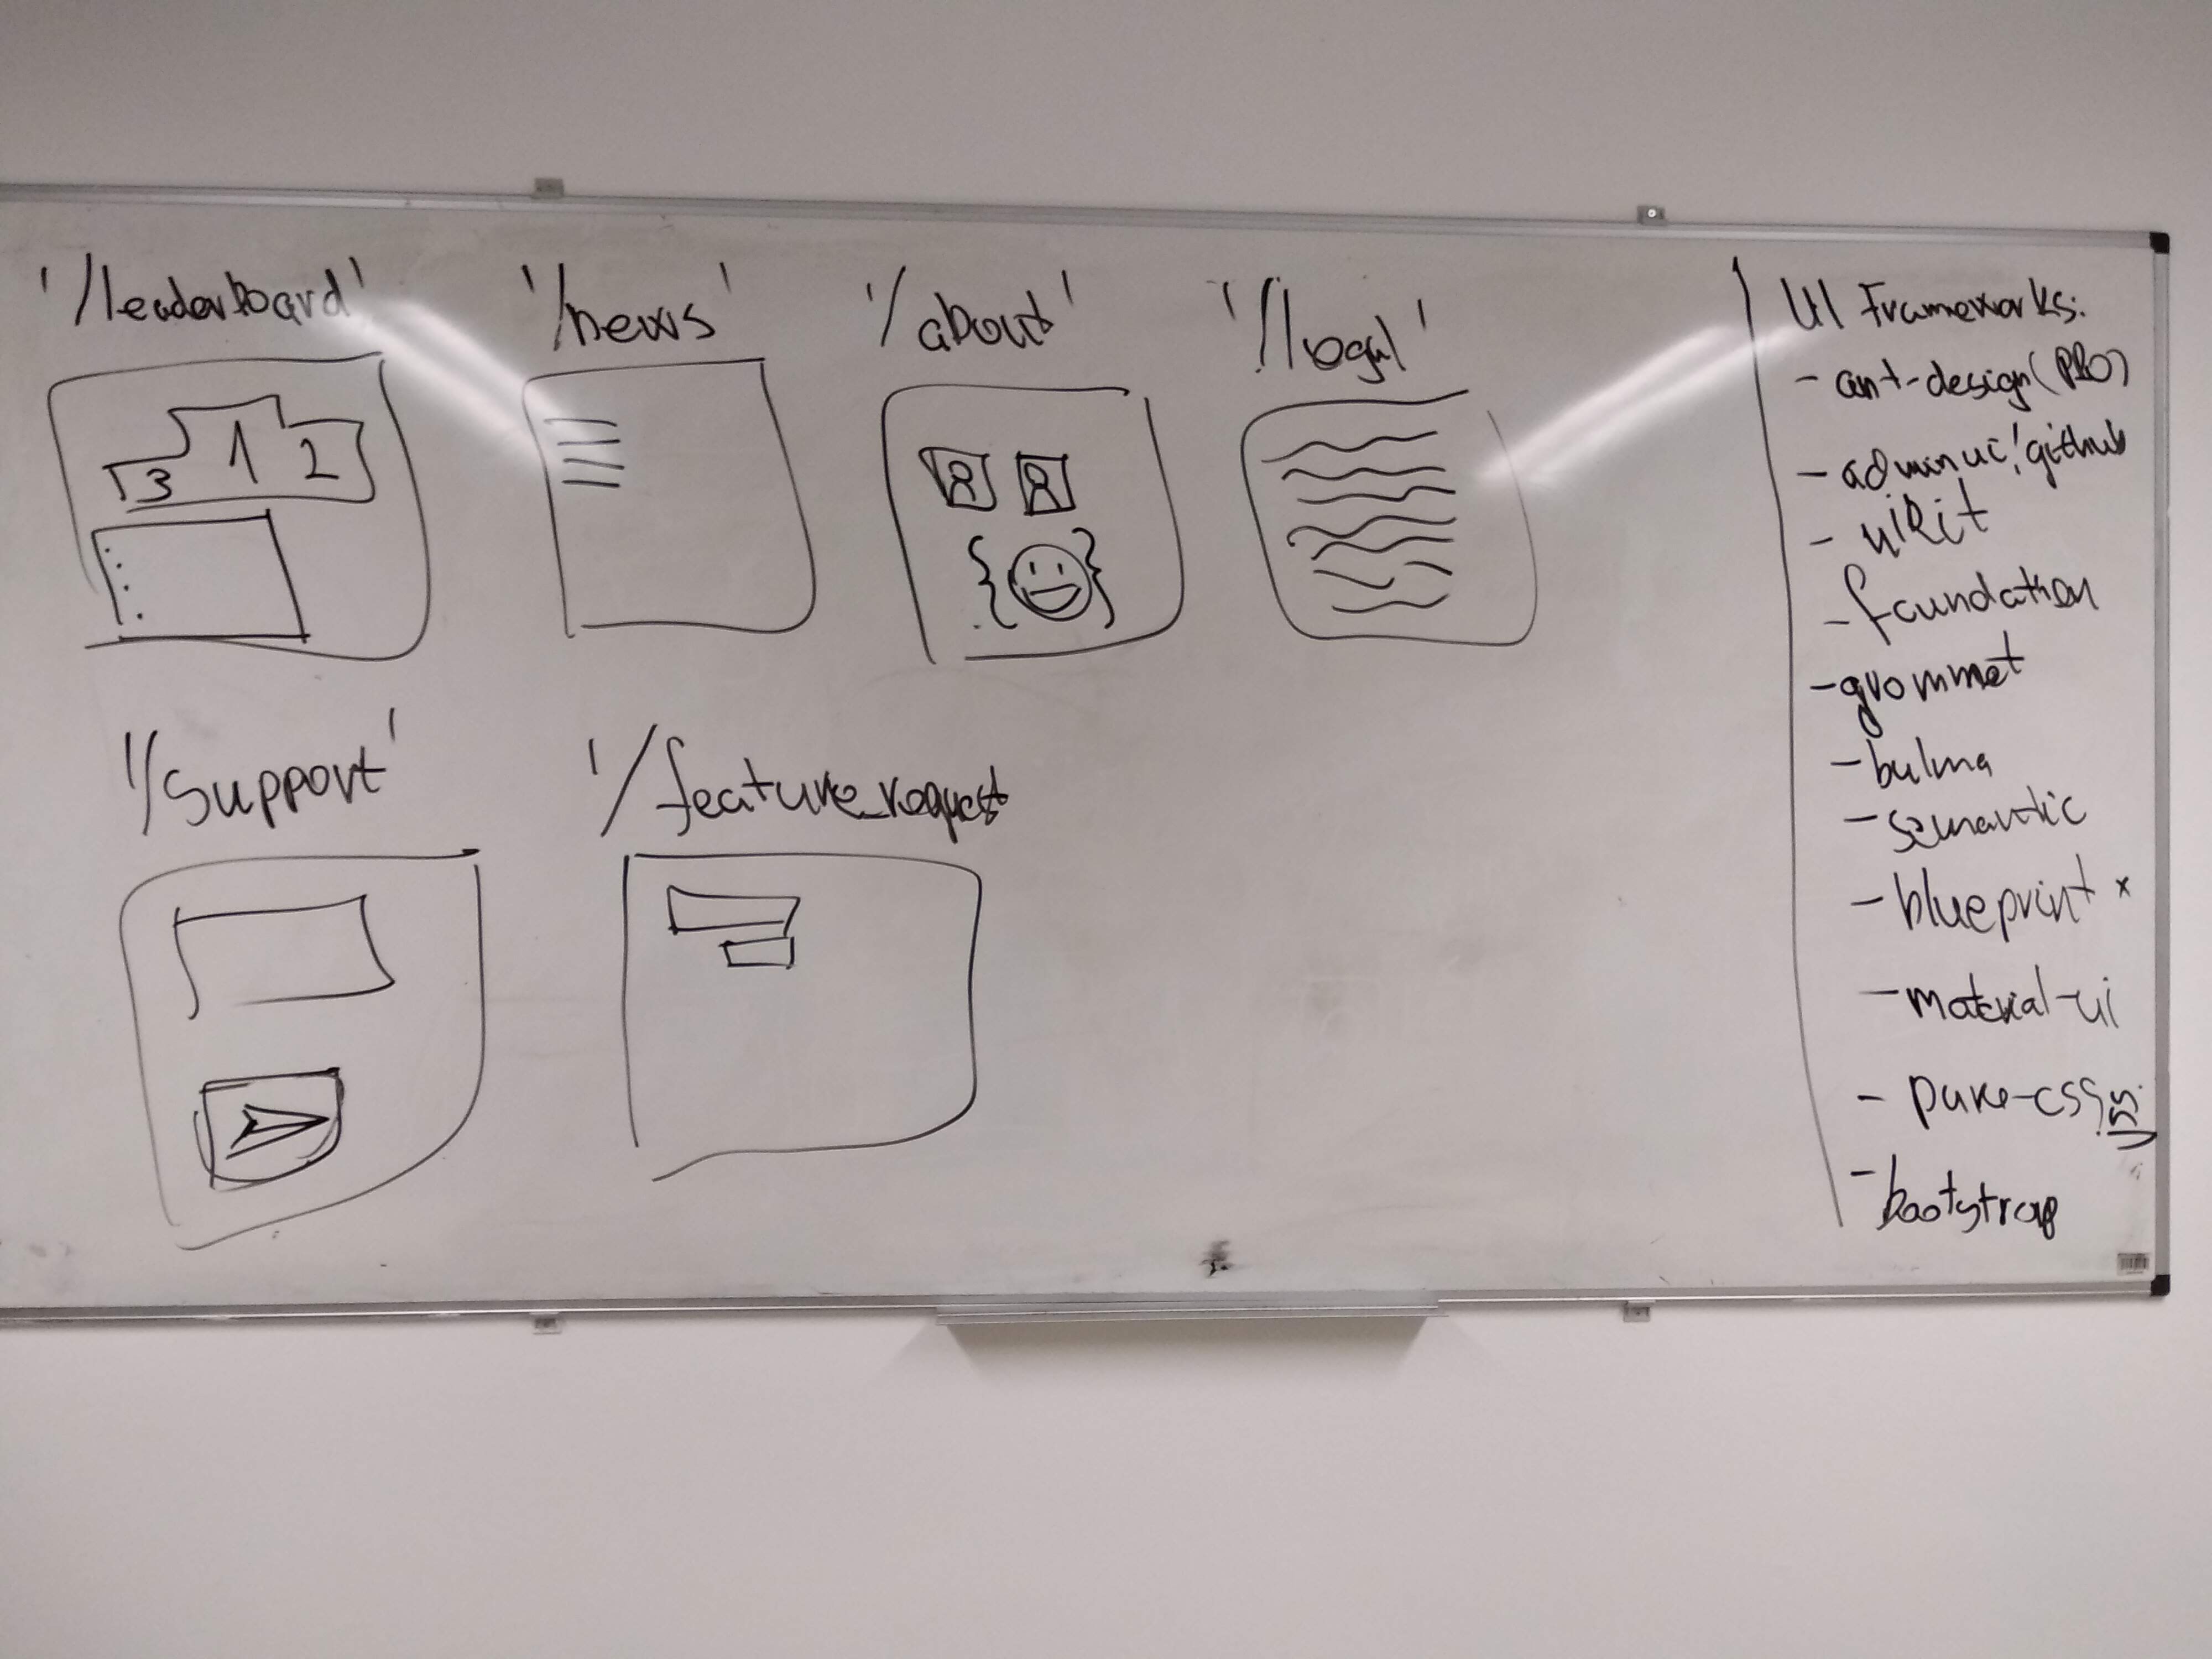 '/leaderboard'
'/news'
'/about'
3
1
2
'/support'
'/feature_request
UI Frameworks:
- ant-design(PRO)
- uikit
- foundation
- grommet
- bulma
- semantic
- blueprint x
- material-ui
- pure-css
- bootstrap